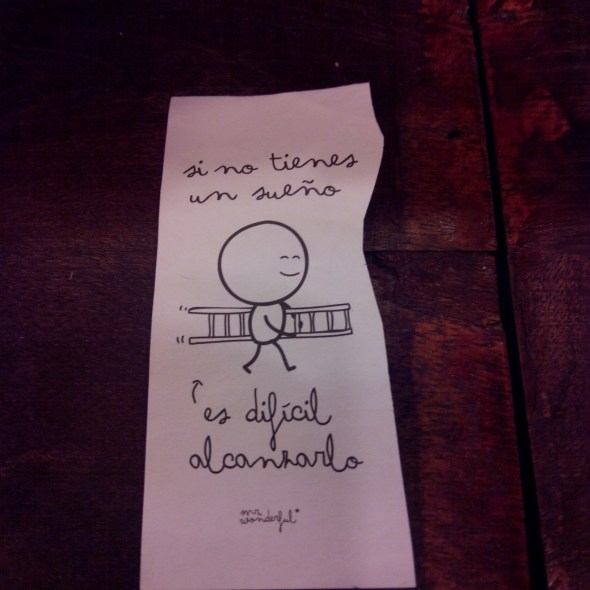 si no tienes
un sueño
es difícil
alcanzarlo
mr.
wonderful*